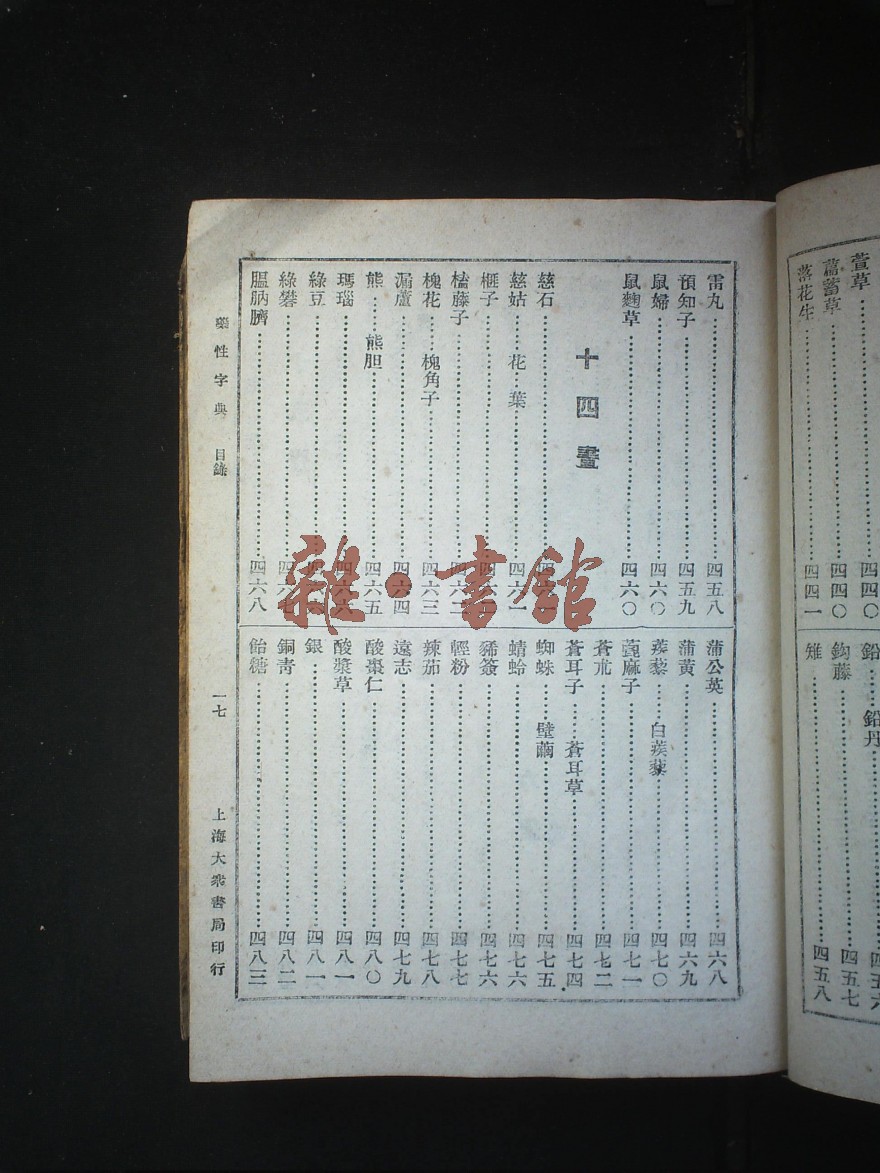 萱草……四四〇
萹蓄草……四四〇
落花生……四四一
鉛 鉛丹……四五六
鈎藤……四五七
雉……四五八
雷丸……四五八
預知子……四五九
鼠婦……四六〇
鼠麴草……四六〇
十四畫
慈石……四六一
慈姑……花 葉……四六一
榧子……四六
榼藤子……四六二
槐花……槐角子……四六三
漏蘆……四六四
熊……熊胆……四六五
瑪瑙……四六六
綠豆……四六
綠礬……四六七
膃肭臍……四六八
蒲公英……四六八
蒲黃……四六九
蒺藜……白蒺藜……四七〇
蓖麻子……四七一
蒼朮……四七二
蒼耳子……蒼耳草……四七四
蜘蛛……壁繭……四七五
蜻蛉……四七六
豨簽……四七六
輕粉……四七七
辣茄……四七八
遠志……四七九
酸棗仁……四八〇
酸漿草……四八一
銀……四八一
銅靑……四八二
飴糖……四八三
藥性字典 目錄 一七 上海大衆書局印行
雜·書館